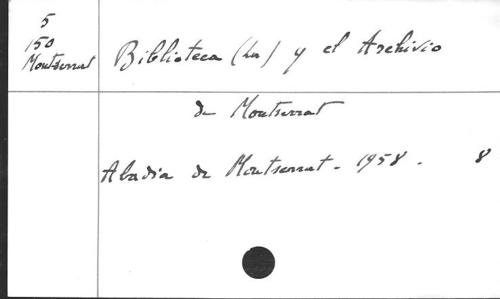 5
150
Montserrat
Biblioteca (La) y el Archivio
de Montserrat
Abadia de Montserrat - 1958 . 8